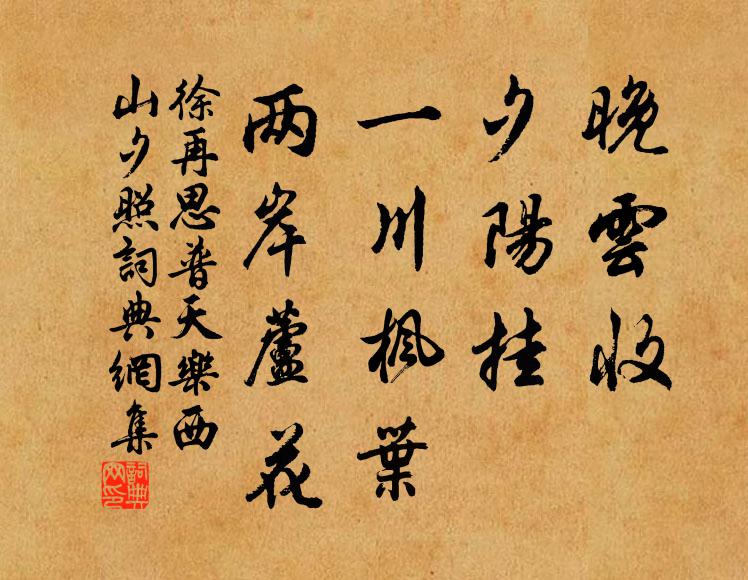 晚雲收
夕陽挂
一川楓葉
两岸蘆花
徐再思普天樂西
山夕照詞典網集
詞典
网印